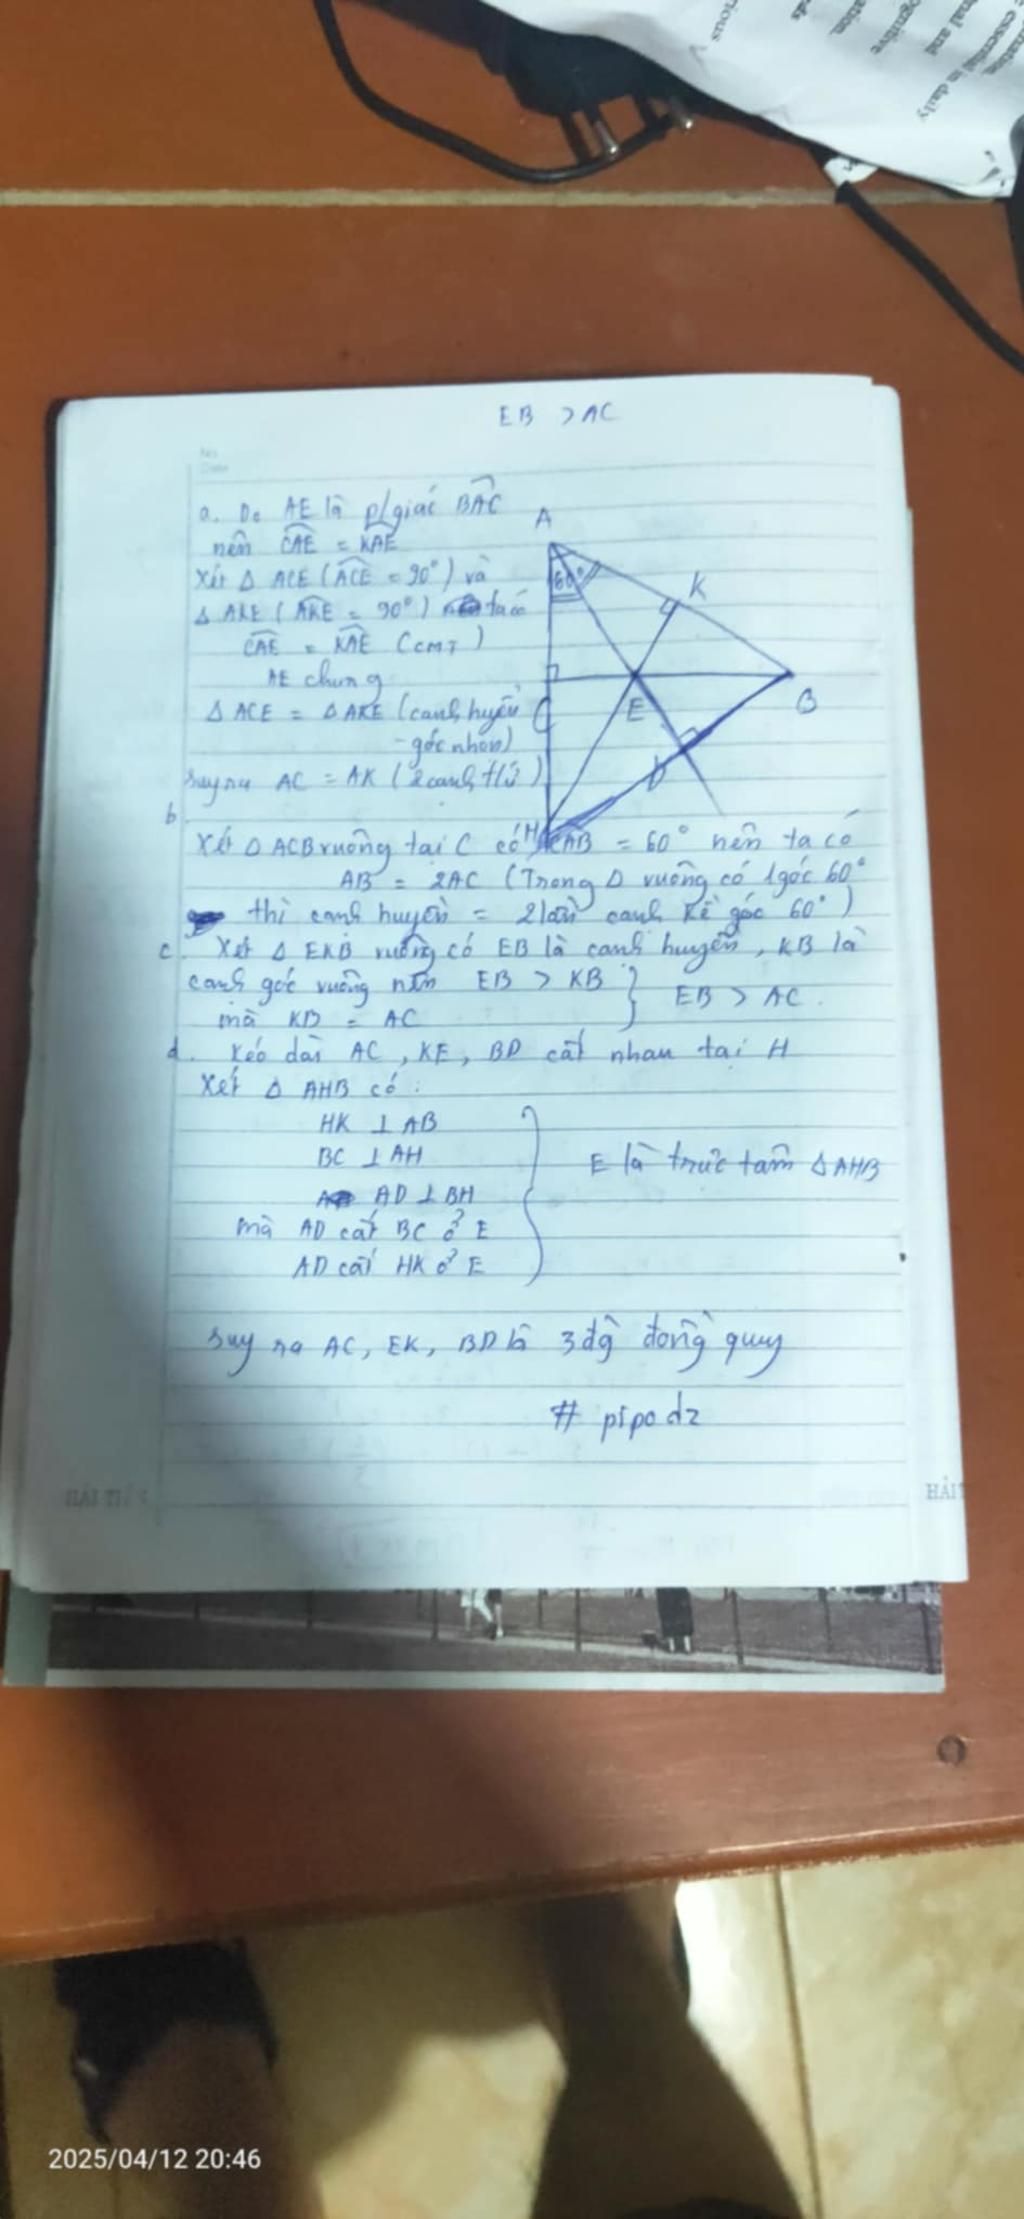 EB > AC
No.
Date
a. Do AE là p/giác BAC
nên CAE = KAE
Xét Δ ACE (ACE = 90°) và
Δ AKE (AKE = 90°) ta có
CAE = KAE (CMT)
AE chung
Δ ACE = Δ AKE (cạnh huyền
- góc nhọn)
suy ra AC = AK (2 cạnh t/ứ)
A
60°
K
C
E
B
D
H
b.
Xét Δ ACB vuông tại C có CAB = 60° nên ta có
AB = 2AC (Trong Δ vuông có 1 góc 60°
thì cạnh huyền = 2 lần cạnh kề góc 60°)
c. Xét Δ EKB vuông có EB là cạnh huyền, KB là
cạnh góc vuông nên EB > KB
mà KB = AC
EB > AC.
d. Kéo dài AC, KE, BD cắt nhau tại H
Xét Δ AHB có:
HK ⊥ AB
BC ⊥ AH
AD ⊥ BH
mà AD cắt BC ở E
AD cắt HK ở E
E là trực tâm Δ AHB
suy ra AC, EK, BD là 3 đg đồng quy
# pipo dz
HẢI TIẾN
HẢI
2025/04/12 20:46